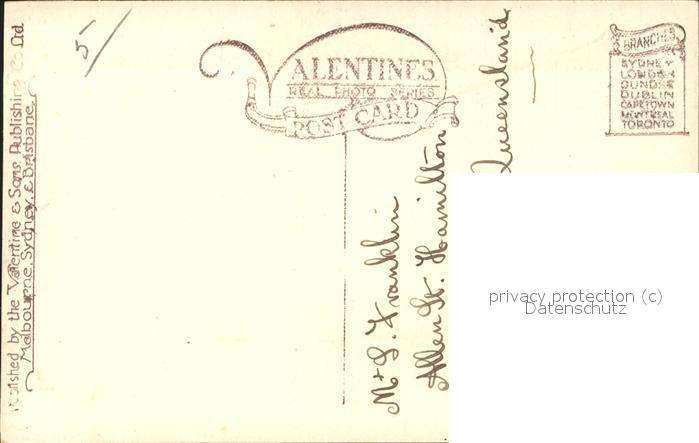 5-
VALENTINES
REAL PHOTO SERIES
POST CARD
BRANCHES
SYDNEY
LONDON
DUNDEE
DUBLIN
CAPETOWN
MONTREAL
TORONTO
Published by the Valentine & Sons Publishing Co Ltd.
Melbourne, Sydney, & Brisbane.
Franklin
Allen St. Hamilton
Queensland
privacy protection (c)
Datenschutz